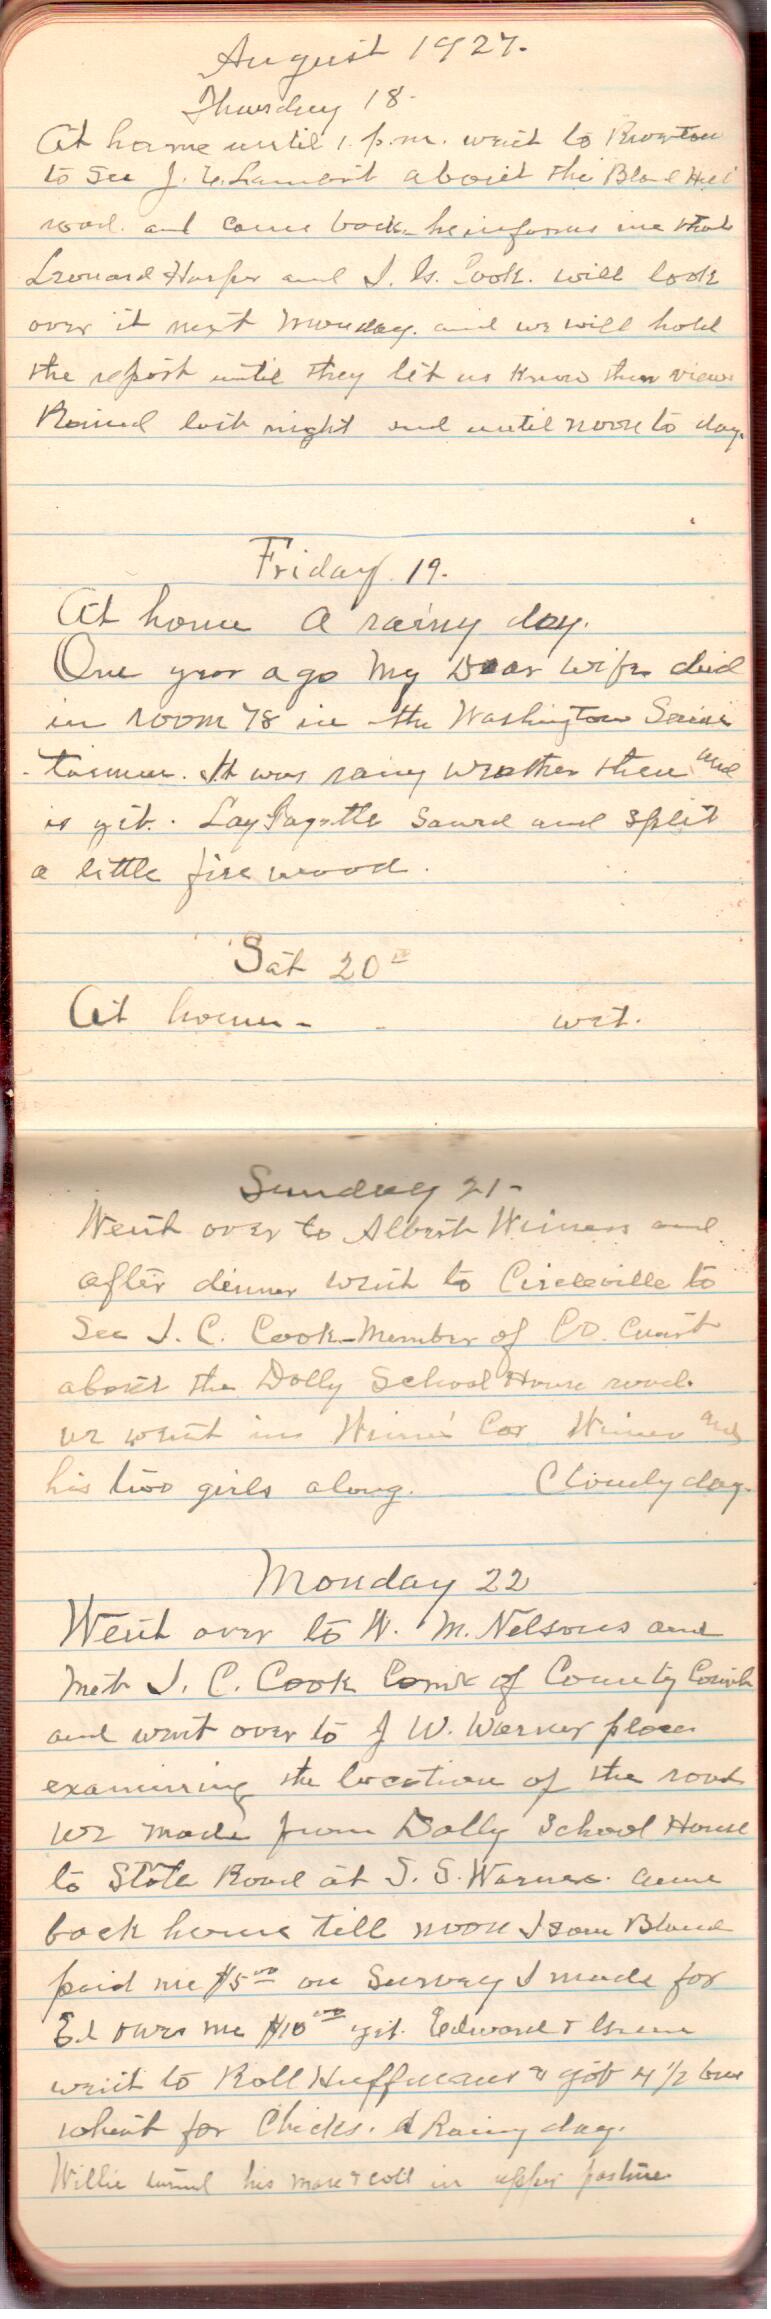 August 1927.
Thursday 18-
At home until 1. p.m. went to Riverton
to See J. Lambert about the Bland Hill
road. and came back. he informs me that
Leonard Harper and J. Cook. will look
over it next Monday. and we will hold
the report until they let us know their views
Rained last night and until noon to day.
Friday 19.
At home A rainy day.
One year ago My Dear wife died
in room 78 in the Washington Sani
-tarium. It was rainy weather then and
is yit. Lay sawed and split
a little fire wood.
Sat 20th
At home - - wet.
Sunday 21-
Went over to Albert Wimers and
after dinner went to Circleville to
See J. C. Cook-Member of Co. Court
about the Dolly School House road.
we went in Wimers Car Wimer and
his two girls along. Cloudy day.
Monday 22
Went over to W. M. Nelsons and
Met J. C. Cook of County Court
and went over to J W. Warner place
examining the location of the road
we made from Dolly School House
to State Road at S. S. Warners. Came
back home till noon Isom Bland
paid me $5.00 on Survey I made for
Ed owes me $10.00 yit. Edward &
went to Roll Huffmans & got 4 1/2 bus
wheat for Chicks. A Rainy day.
Willie turned his mare & colt in upper pasture